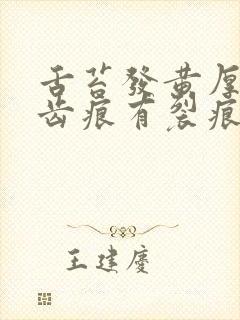 舌苔發黄厚
齿痕有裂痕
王建慶